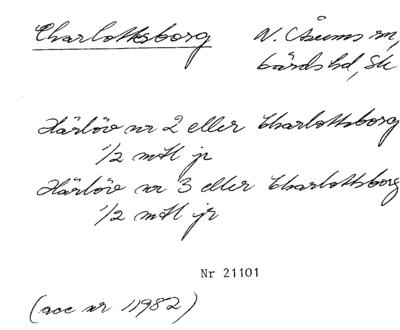 Charlottsborg N. Åsums sn,
Gärds hd, Sk
Härlöv nr 2 eller Charlottsborg
1/2 mtl jr
Härlöv nr 3 eller Charlottsborg
1/2 mtl jr
Nr 21101
(acc nr 11982)